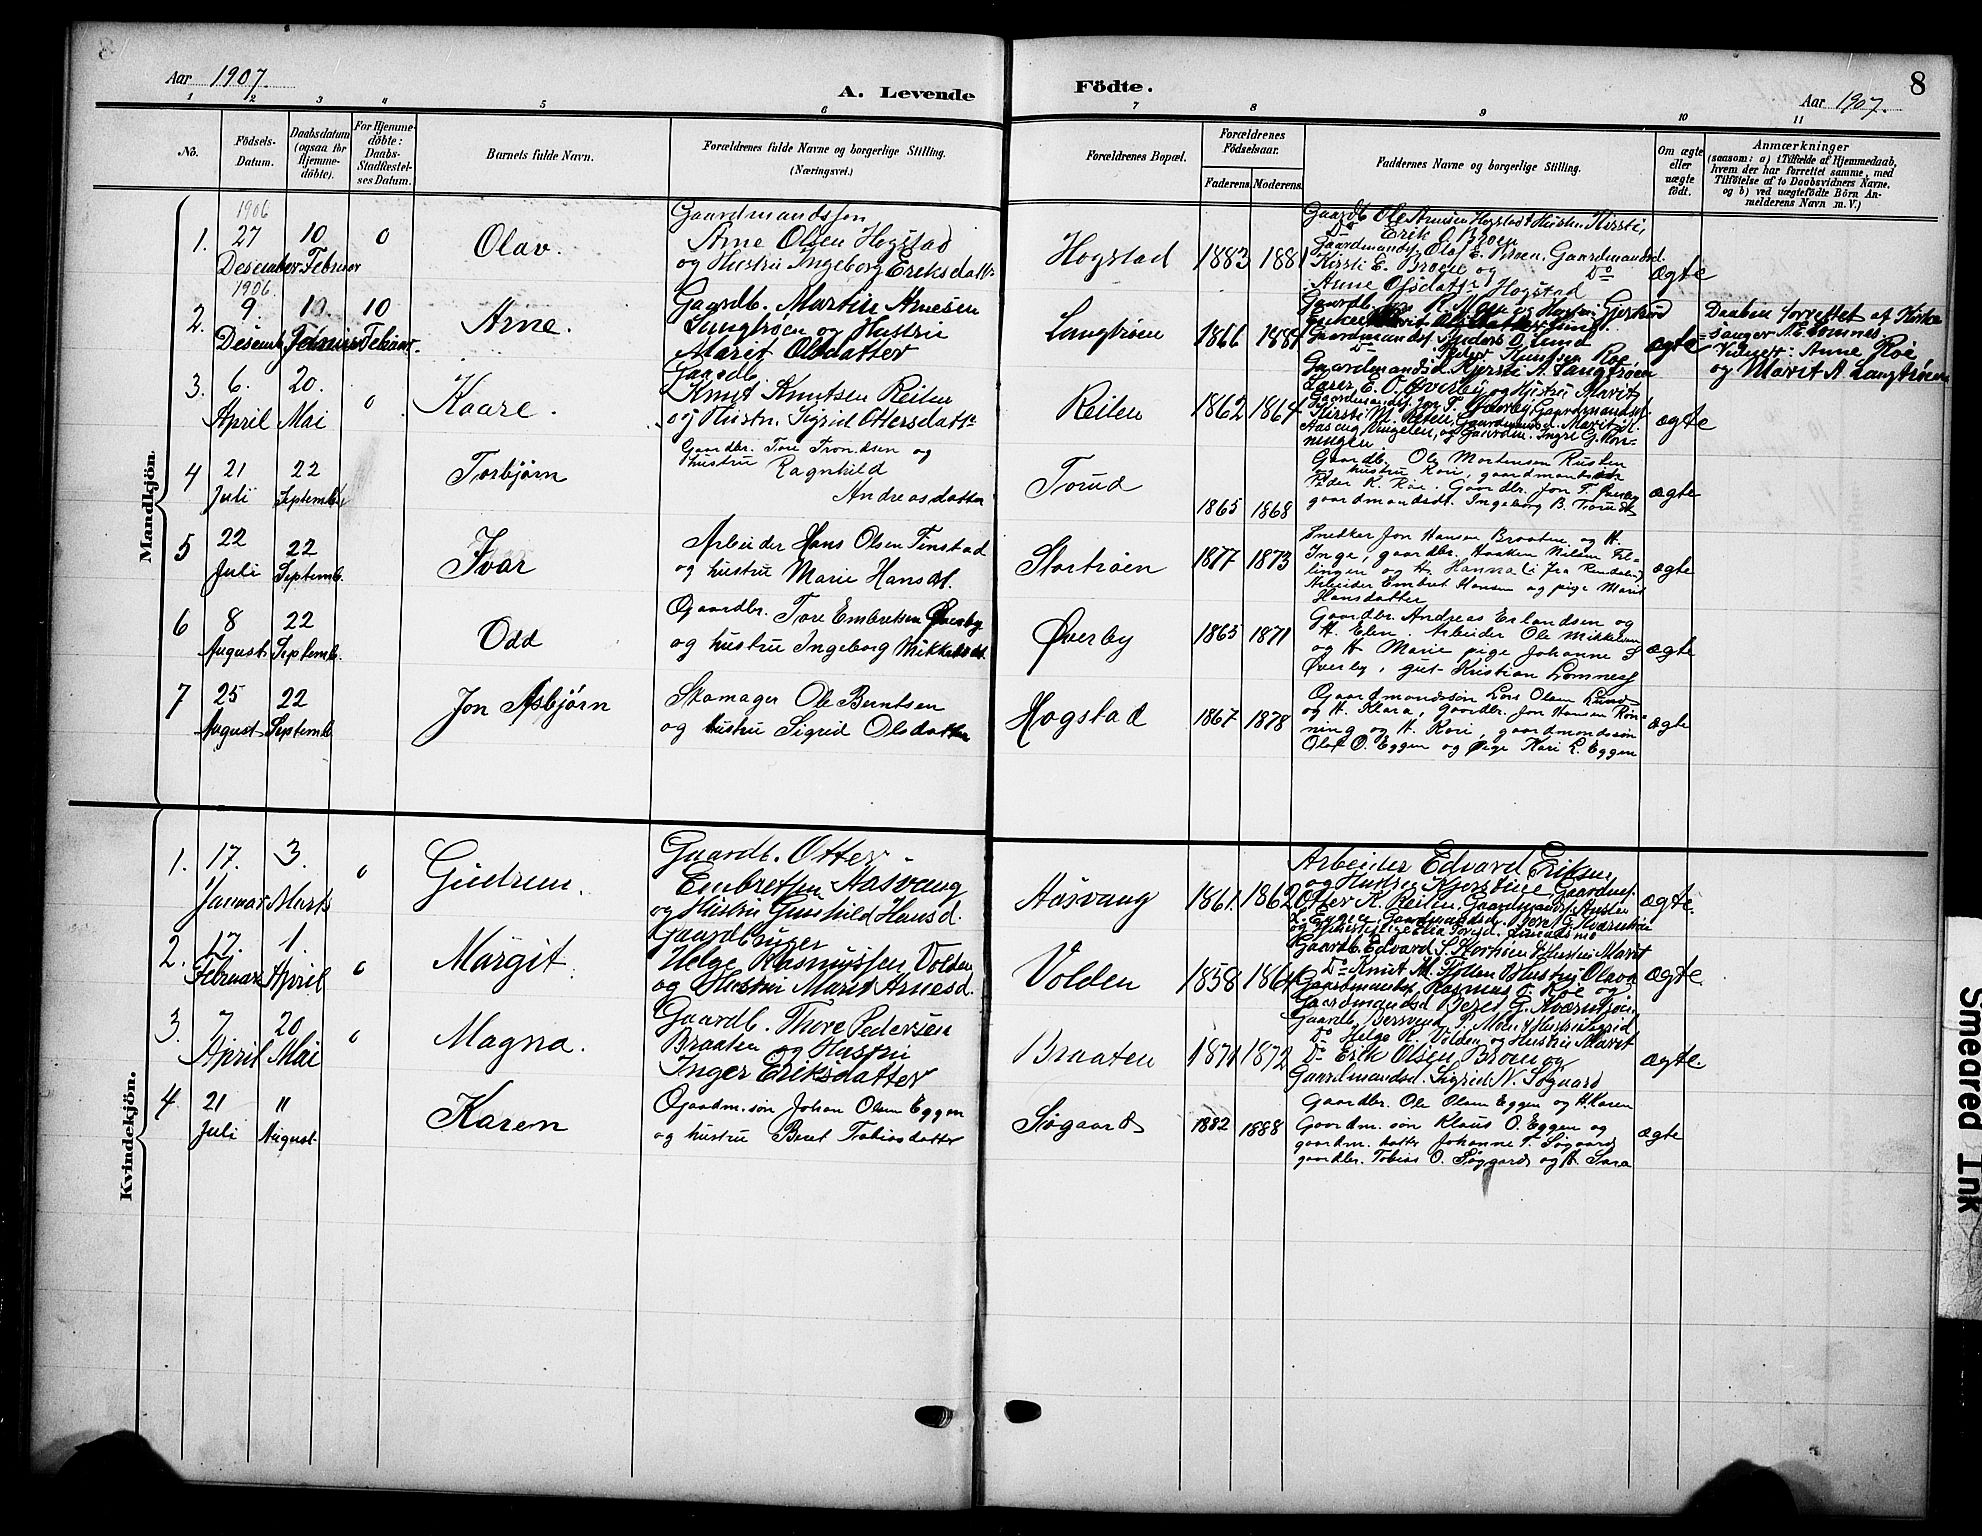 8
Aar 1907.
A. Levende Födte.
Aar 1907.
8
1 2 3 4 5 6 7 8 9 10 11
No.
Födsels-
Datum.
Daabsdatum
(ogsaa for
Hjemme-
döbte).
For Hjemme-
döbte:
Daabs-
Stadfæstel-
ses Datum.
Barnets fulde Navn.
Forældrenes fulde Navne og borgerlige Stilling.
(Næringsvei.)
Forældrenes Bopæl.
Forældrenes
Födselsaar.
Faderens. Moderens.
Faddernes Navne og borgerlige Stilling.
Om ægte
eller
uægte
födt.
Anmærkninger
(saasom: a) i Tilfælde af Hjemmedaab,
hvem der har forrettet samme, med
Tilföielse af to Daabsvidners Navne.
og b) ved uægtefödte Börn An-
melderens Navn m. V.)
Mandkjön.
1.
1906
27
Desember
10
Februar
0
Olav.
Gaardmandssøn
Arne Olsen Hogstad
og Hustru Ingeborg Eriksdatt.
Hogstad
1883
1881
Gaardb. Ole Arnesen Hogstad & Hustru Kirsti,
Do Erik O. Broen
Gaardmands. Olaf E. Broen, Gaardmandsd.
Kirsti E. Broen og Do
Anne Olsdatter Hogstad
ægte
2.
1906.
9.
Desemb.
10.
Februar
10
Februar.
Arne.
Gaardb. Martin Arnesen
Langtrøen og Hustru
Marit Olsdatter
Langtrøen
1866
1884
Knutsen Roe
Gaardmandsd. Kjersti A. Langtrøen
ægte
Daaben forrettet af Kirke-
sanger A. E. Lomnes
Vidner: Anne Røe
og Marit A Langtrøen
3.
6.
April
20.
Mai
0
Kaare.
Gaardb.
Knut Knutsen Reiten
og Hustru Sigrid Ottersdatt.
Reiten
1862
1864
Lærer E. O. Øverby og Hustru Marit,
Gaardmands. Jon T. Øverby, Gaardmandsd.
Kirsti M. Reiten, Gaardmandsd. Marit
ægte
4
21
Juli
22
September
Torbjørn
Gaardbr. Tore Trondsen og
hustru Ragnhild
Andreasdatter
Torud
1865
1868
Gaardbr. Ole Mortensen Rusten
og hustru Kari, gaardmandssøn
Peder K. Røe. Gaardbr. Jon T. Øverby
gaardmandsdt. Ingeborg B. Torud
ægte
5
22
Juli
22
Septemb.
Ivar
Arbeider Hans Olsen Finstad
og hustru Marie Hansdt.
Stortrøen
1877
1873
Smedker Jon Hansen Braaten og H.
Inge, gaardbr. Haaken Nilsen Fel-
lingen og H. Hanna (i fra Rendalen)
Arbeider Embret Hansen og pige Marit
Hansdatter
ægte
6
8
August
22
Septemb.
Odd
Gaardbr. Tore Embretsen Øverby
og hustru Ingeborg Mikkelsdt.
Øverby
1865
1871
Gaardbr. Andreas Erlandsen og
H. Elen. Arbeider Ole Mikkelsen
og H Marie pige Johanne S
Øverby, gut Kristian Lomnes
ægte
7
25
August
22
Septemb
Jon Asbjørn
Skomager Ole Berntsen
og hustru Sigrid Olsdatter
Hogstad
1867
1878
Gaardmandssøn Lars Olsen Lund
og H. Klara, gaardbr. Jon Hansen Røn-
ning og H. Kari, gaardmandssøn
Olaf O. Eggen og pige Kari L. Eggen
ægte
Kvindekjön.
1.
17.
Januar
3.
Marts
0
Gudrun.
Gaardb. Otter
Embretsen Aasvang
og Hustru Gunhild Hansd.
Aasvang
1861.
1862
Arbeider Edvard Eriksen
Otter K. Reiten, Gaardmandss.
ægte.
2.
17.
Februar
1.
April
0
Margit.
Gaardbruger
Helge Rasmussen Volden
og Hustru Marit Arnesd.
Volden
1858
1864
Gaardb. Edvard S. Stortrøen & Hustru Marit
Do Knut M. Tollen & Hustru Olava
Gaardmands. Rasmus O. Røe og
Gaardmandsd Beret G. Kværntrøen
ægte.
3.
7
April
20
Mai
0
Magna.
Gaardb. Thore Pedersen
Braaten og Hustru
Inger Eriksdatter
Braaten
1871
1872
Gaardb. Bersvend P. Moen & Hustru Sigrid
Do Helge R. Volden og Hustru Marit
Do Erik Olsen Broen og
Gaardmandsd. Sigrid N. Søgaard
ægte.
4
21
Juli
11
August
Karen
Gaardm.søn Johan Olsen Eggen
og hustru Beret Tobiasdatter
Søgaard
1882
1888
Gaardbr. Ole Olsen Eggen og H. Karen
Gaardm. søn Klaus O. Eggen og
gaardm. datter Johanne T. Søgaard
gaardbr. Tobias O. Søggard og H Sara
ægte
Smeared Ink